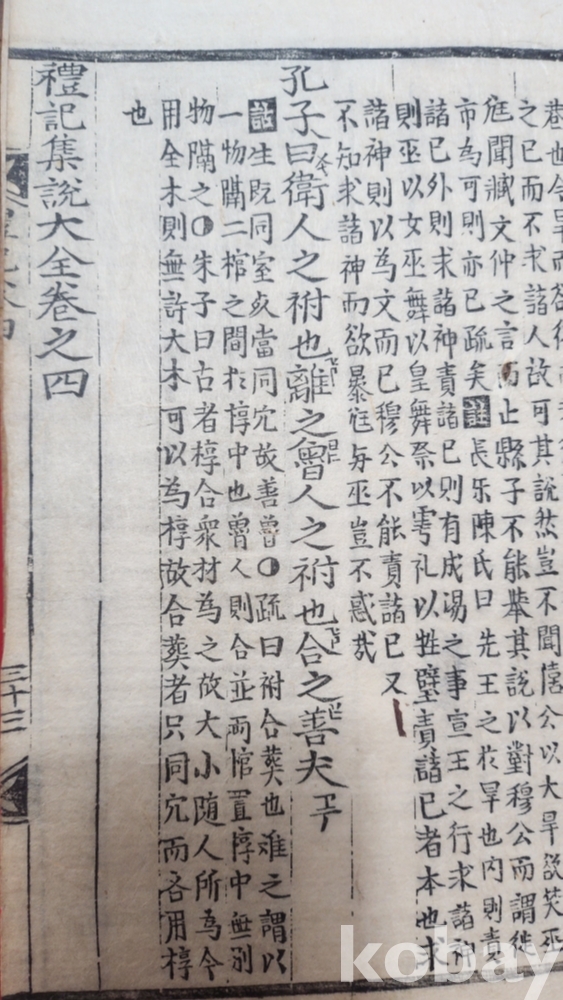 巷也今旱而欲
之已而不求諸人故可其說然豈不聞僖公以大旱欲焚巫
尫聞臧文仲之言而止縣子不能舉其說以對穆公而謂徙
市為可則亦已疏矣註長乐陳氏曰先王之於旱也内則責
諸已外則求諸神責諸已則有成湯之事宣王之行求諸神
則巫以女巫舞以皇舞祭以雩礼以牲璧責諸已者本也求
諸神則以為文而已穆公不能責諸已又
不知求諸神而欲暴尫与巫豈不惑哉
孔子曰衛人之祔也離之魯人之祔也合之善夫
註生既同室死當同穴故善魯○疏曰祔合葬也離之謂以
一物隔二棺之間於椁中也魯人則合並兩棺置椁中無別
物隔之○朱子曰古者椁合衆材為之故大小随人所為今
用全木則無許大木可以為椁故合葬者只同穴而各用椁
也
禮記集說大全卷之四
三十二
kobay